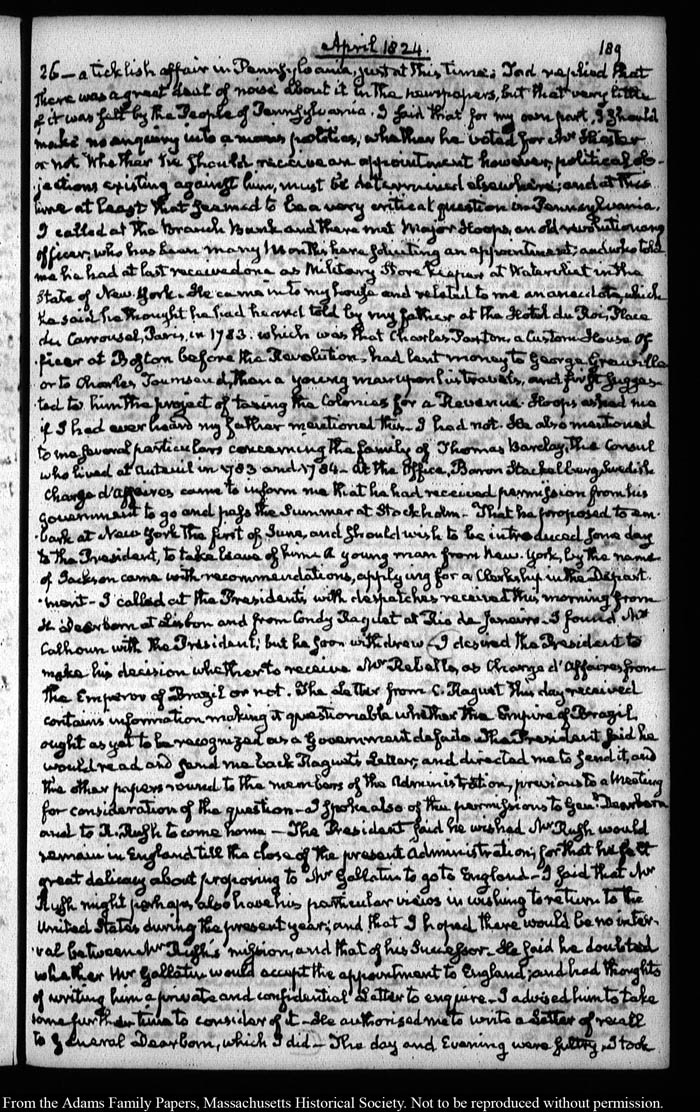 April 1824.
189
26 — a ticklish affair in Pennsylvania, just at this time; Tod replied that
there was a great deal of noise about it in the newspapers, but that very little
of it was felt by the People of Pennsylvania. I said that for my own part, I should
make no enquiry into a mans politics, whether he voted for Mr Hiester
or not. Whether he should receive an appointment however, political ob-
jections existing against him, must be determined elsewhere; and at this
time at least that seemed to be a very critical question in Pennsylvania.
I called at the Branch Bank and there met Major Hoops, an old revolutionary
Officer, who has been many Months here soliciting an appointment; and who told
me he had at last received one as Military Store keeper at Watervliet in the
State of New-York. He came in to my house and related to me an anecdote, which
he said he thought he had heard told by my father at the Hotel du Roi, Place
du Carrousel, Paris, in 1783. which was that Charles Paxton, a Custom House Of-
ficer at Boston before the Revolution, had lent money to George Grenville
or to Charles Townsend, then a young man upon his travels, and first sugges-
ted to him the project of taxing the Colonies for a Revenue. Hoops asked me
if I had ever heard my father mention this. I had not. He also mentioned
to me several particulars concerning the family of Thomas Barclay, the Consul
who lived at Auteuil in 1783 and 1784 — at the Office, Baron Stackelberg Swedish
Chargé d'Affaires came to inform me that he had received permission from his
government to go and pass the Summer at Stockholm — That he proposed to em-
bark at New York the first of June, and should wish to be introduced some day
to the President, to take leave of him. A young man from New-York, by the name
of Jackson came with recommendations, applying for a Clerkship in the Depart-
ment — I called at the Presidents with despatches received this morning from
H. Dearborn at Lisbon and from Condy Raguet at Rio de Janeiro — I found Mr
Calhoun with the President; but he soon withdrew — I desired the President to
make his decision whether to receive Mr Rebello, as Chargé d'Affaires from
the Emperor of Brazil or not. The Letter from C. Raguet this day received
contains information making it questionable whether the Empire of Brazil,
ought as yet to be recognized as a Government de facto. The President said he
would read and send me back Raguet's Letter, and directed me to send it, and
the other papers round to the members of the Administration, previous to a Meeting
for consideration of the question — I spoke also of the permissions to Genl. Dearborn
and to R. Rush to come home — The President said he wished Mr Rush would
remain in England till the close of the present Administration; for that he felt
great delicacy about proposing to Mr Gallatin to go to England — I said that Mr
Rush might perhaps also have his particular views in wishing to return to the
United States during the present year; and that I hoped there would be no inter-
val between Mr Rush's mission, and that of his Successor — He said he doubted
whether Mr Gallatin would accept the appointment to England; and had thoughts
of writing him a private and confidential Letter to enquire — I advised him to take
some further time to consider of it — He authorised me to write a Letter of recall
to General Dearborn, which I did — The day and Evening were sultry. I took
From the Adams Family Papers, Massachusetts Historical Society. Not to be reproduced without permission.